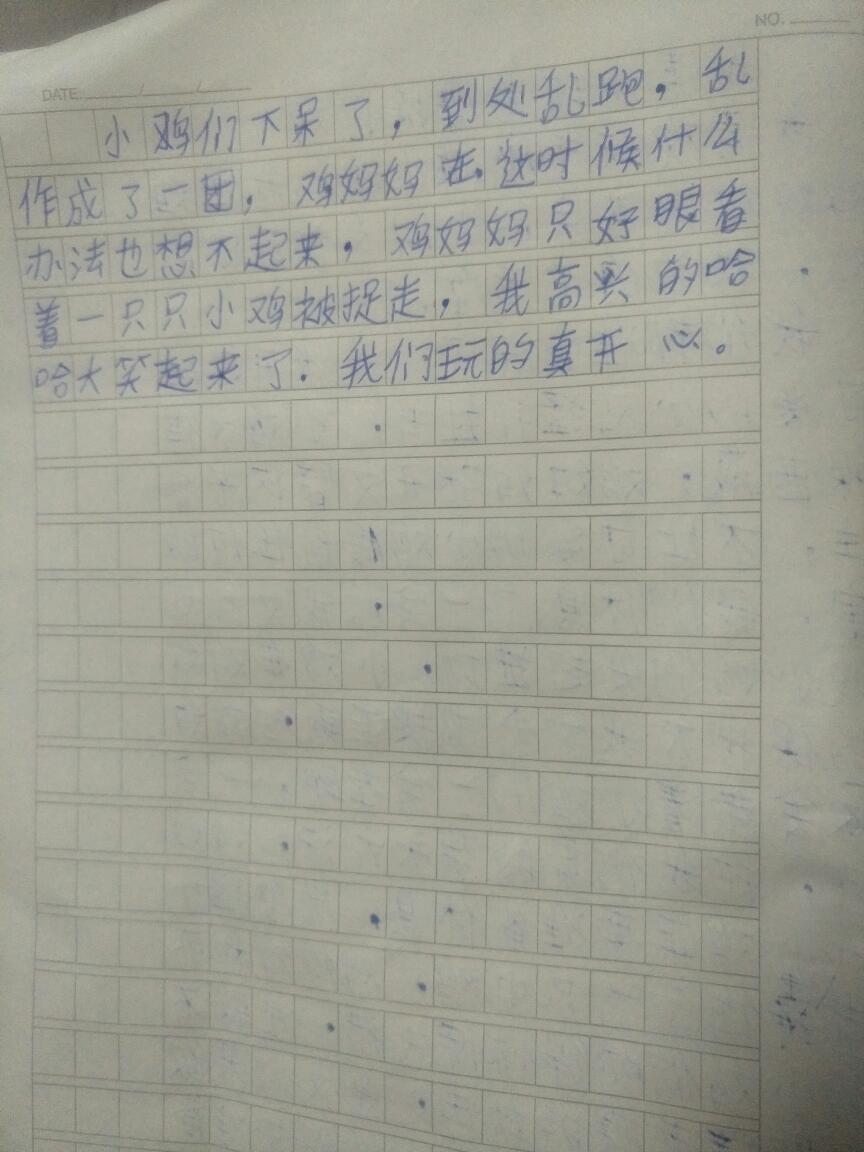 NO.
DATE / /
小鸡们下呆了，到处乱跑，乱
作成了一团，鸡妈妈在这时候什么
办法也想不起来，鸡妈妈只好眼看
着一只只小鸡被捉走，我高兴的哈
哈大笑起来了．我们玩的真开心。